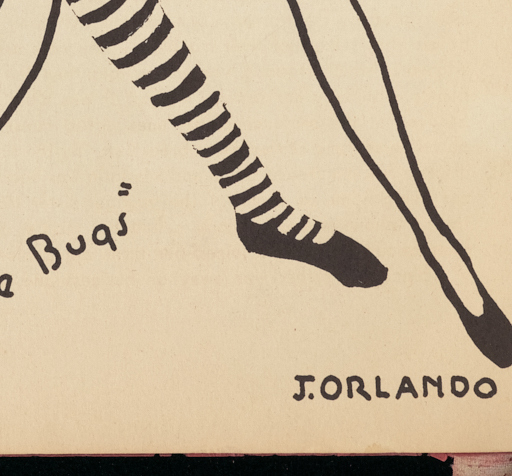 e Bugs"
J. ORLANDO